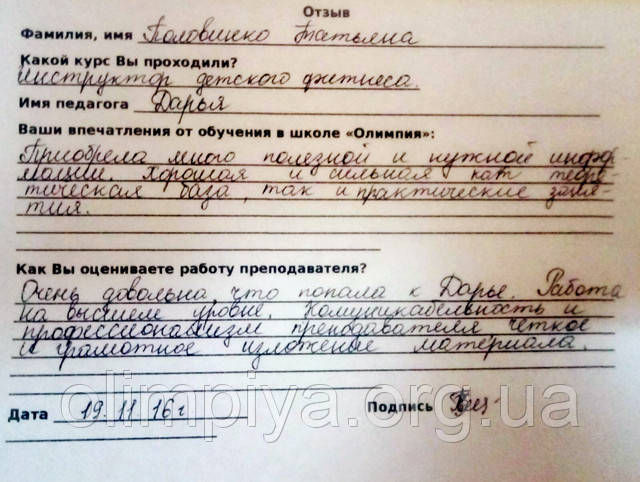 Отзыв
Фамилия, имя Половинко Татьяна
Какой курс Вы проходили?
Инструктор детского фитнеса.
Имя педагога Дарья
Ваши впечатления от обучения в школе «Олимпия»:
Приобрела много полезной и нужной инфор-
мации. Хорошая и сильная как теоре-
тическая база, так и практические заня-
тия.
Как Вы оцениваете работу преподавателя?
Очень довольна, что попала к Дарье. Работа
на высшем уровне. Комуникабельность и
профессионализм преподавателя четкое
и грамотное изложение материала.
olimpiya.org.ua
Дата 19.11.16 г Подпись